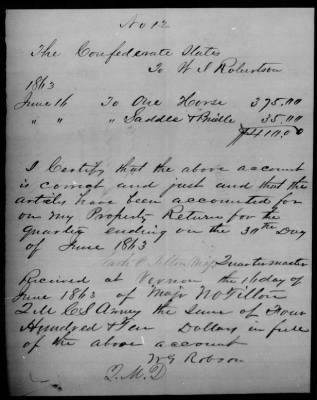 No 12
The Confederate States
To W S Robertson
1863
June 16 To One Horse 375.00
" " " Saddle & Bridle 35.00
$410.00
I Certify that the above account
is correct and just and that the
articles have been accounted for
on my Property Return for the
quarter ending on the 30th Day
of June 1863
Quartermaster
Received at Vernon the 16 day of
June 1863 of Major N O Tilton
Q M C S Army the sum of Four
Hundred & Ten Dollars in full
of the above account
W G Robson
Q. M. D